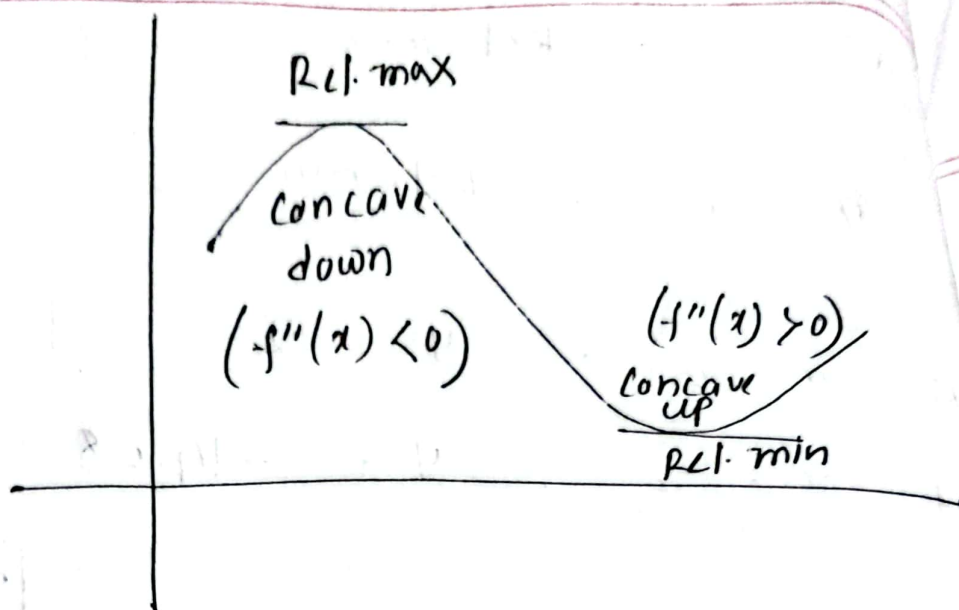 Rel. max
Concave
down
(f''(x) <0)
(f''(x) >0)
Concave
up
Rel. min